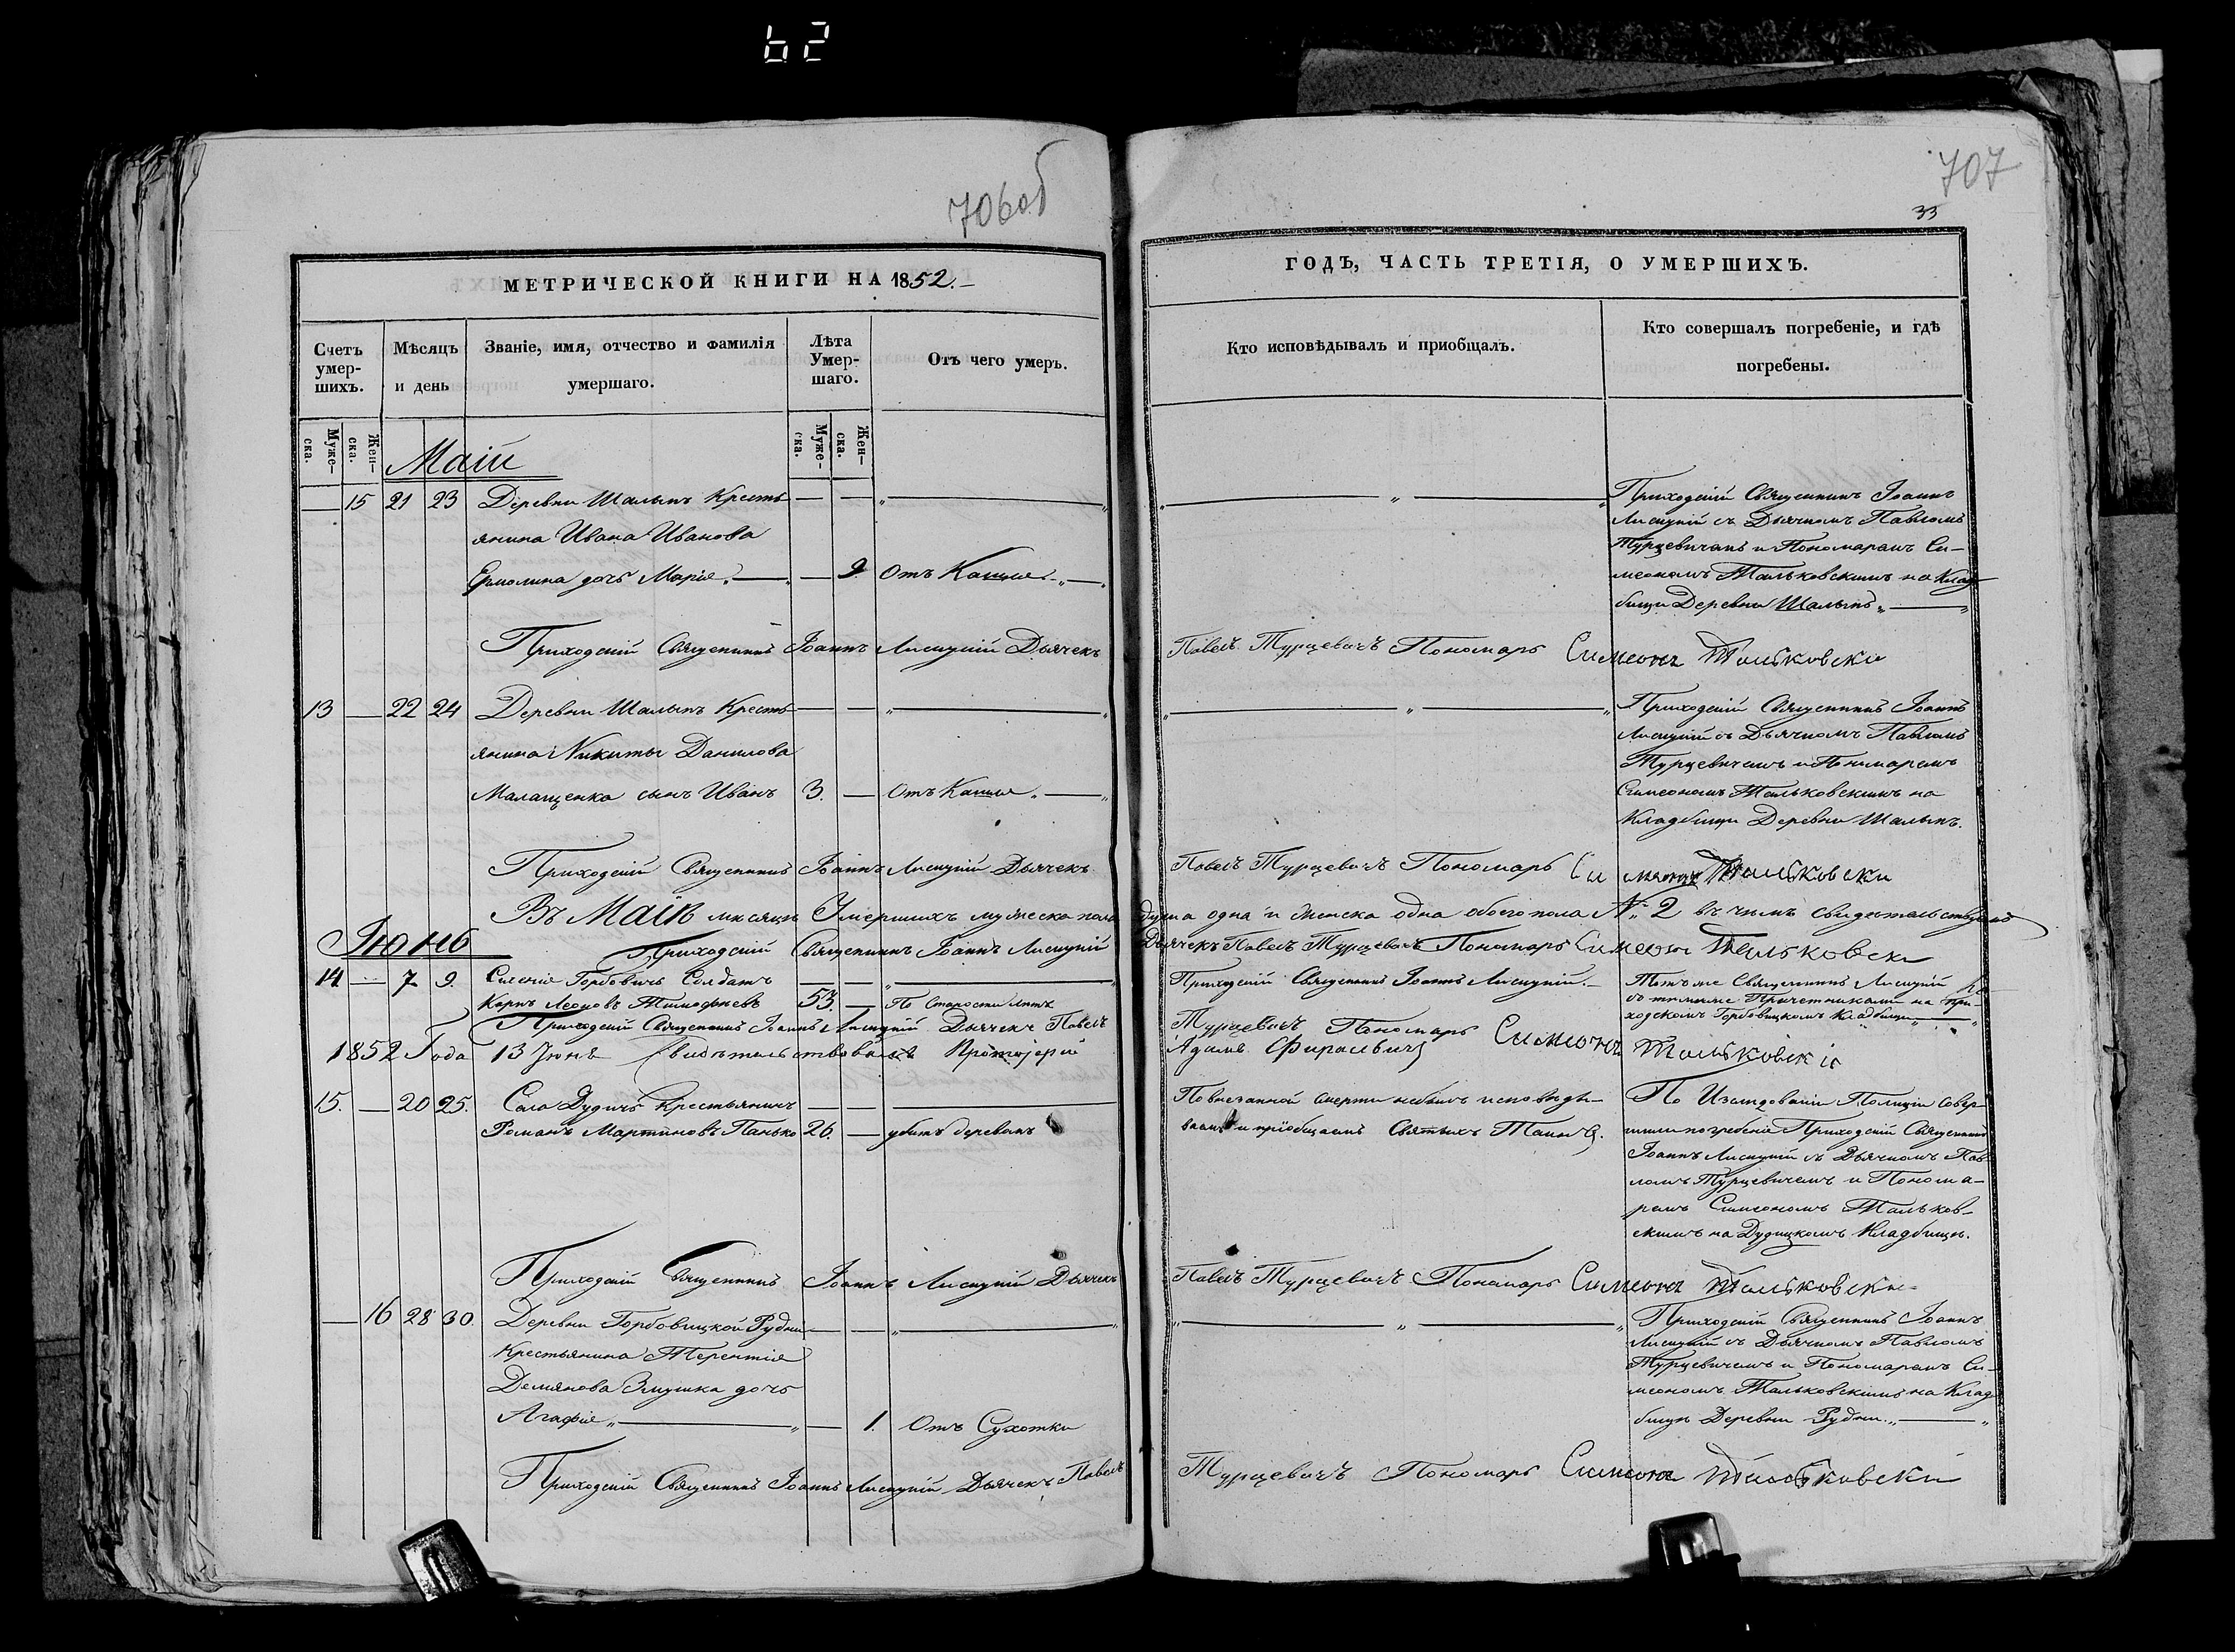 62
706об
МЕТРИЧЕСКОЙ КНИГИ НА 1852.
Счетъ умер-шихъ.
Мѣсяцъ и день
Званіе, имя, отчество и фамилія умершаго.
Лѣта Умер-шаго.
Отъ чего умеръ.
Муже-ска.
Жен-ска.
Муже-ска.
Жен-ска.
Маій
15 21 23 Деревни Шалыпъ Кресть-
янина Ивана Иванова
Ермолина дочь Марія 9. Отъ Кашля
Приходскій Священникъ Іоаннъ Лисицкій Дьячекъ
13 22 24 Деревни Шалыпъ Кресть-
янина Никиты Данилова
Малащенка сынъ Иванъ 3. Отъ Кашля
Приходскій Священникъ Іоаннъ Лисицкій Дьячекъ
Въ Маіи мѣсяцѣ Умершихъ мужеска пола
Іюнь
Приходскій Священникъ Іоаннъ Лисицкій
14 7 9. Селенія Горбовичъ Солдатъ
Карпъ Леоновъ Тимофѣевъ 53. По Старости лѣтъ
Приходскій Священникъ Іоаннъ Лисицкій Дьячекъ Павелъ
1852 Года 13 Іюня Свидѣтельствовалъ Протоіерей
15. 20 25. Села Дудичъ Крестьянинъ
Романъ Мартиновъ Панько 26. убитъ деревомъ
Приходскій Священникъ Іоаннъ Лисицкій Дьячекъ
16 28 30. Деревни Горбовицкой Рудни
Крестьянина Терентія
Демянова Змушка дочь
Агафія 1. Отъ Сухотки
Приходскій Священникъ Іоаннъ Лисицкій Дьячекъ Павелъ
707
33
ГОДЪ, ЧАСТЬ ТРЕТІЯ, О УМЕРШИХЪ.
Кто исповѣдывалъ и пріобщалъ.
Кто совершалъ погребеніе, и гдѣ
погребены.
Приходскій Священникъ Іоаннъ
Лисицкій съ Дьячкомъ Павломъ
Турцевичемъ и Пономаремъ Си-
меономъ Тальковскимъ на Клад-
бищи Деревни Шалыпъ
Павелъ Турцевичъ Пономарь Симеонъ Тальковски
Приходскій Священникъ Іоаннъ
Лисицкій съ Дьячкомъ Павломъ
Турцевичемъ и Пономаремъ
Симеономъ Тальковскимъ на
Кладбищи Деревни Шалыпъ.
Павелъ Турцевичъ Пономарь Симеонъ Тальковски
душа одна и женска одна обоего пола № 2 въ чемъ свидѣтельствуемъ
Дьячекъ Павелъ Турцевичъ Пономарь Симеонъ Тальковски
Приходскій Священникъ Іоаннъ Лисицкій.
Тотъ же Священникъ Лисицкій
съ тѣмиже Причетниками на при-
ходскомъ Горбовицкомъ Кладбищи
Турцевичъ Пономарь Симеонъ Тальковскіи
Адамъ
По внезапной смерти небылъ исповѣды-
ванъ и пріобщаемъ Святыхъ Таинъ.
По Изслѣдованіи Полиціи совер-
шили погребеніе Приходскій Священникъ
Іоаннъ Лисицкій съ Дьячкомъ Пав-
ломъ Турцевичемъ и Понома-
ремъ Симеономъ Тальков-
скимъ на Дудицкомъ Кладбищѣ.
Павелъ Турцевичъ Пономарь Симеонъ Тальковски
Приходскій Священникъ Іоаннъ
Лисицкій съ Дьячкомъ Павломъ
Турцевичемъ и Пономаремъ Си-
меономъ Тальковскимъ на Клад-
бищѣ Деревни Рудни
Турцевичъ Пономарь Симеонъ Тальковски